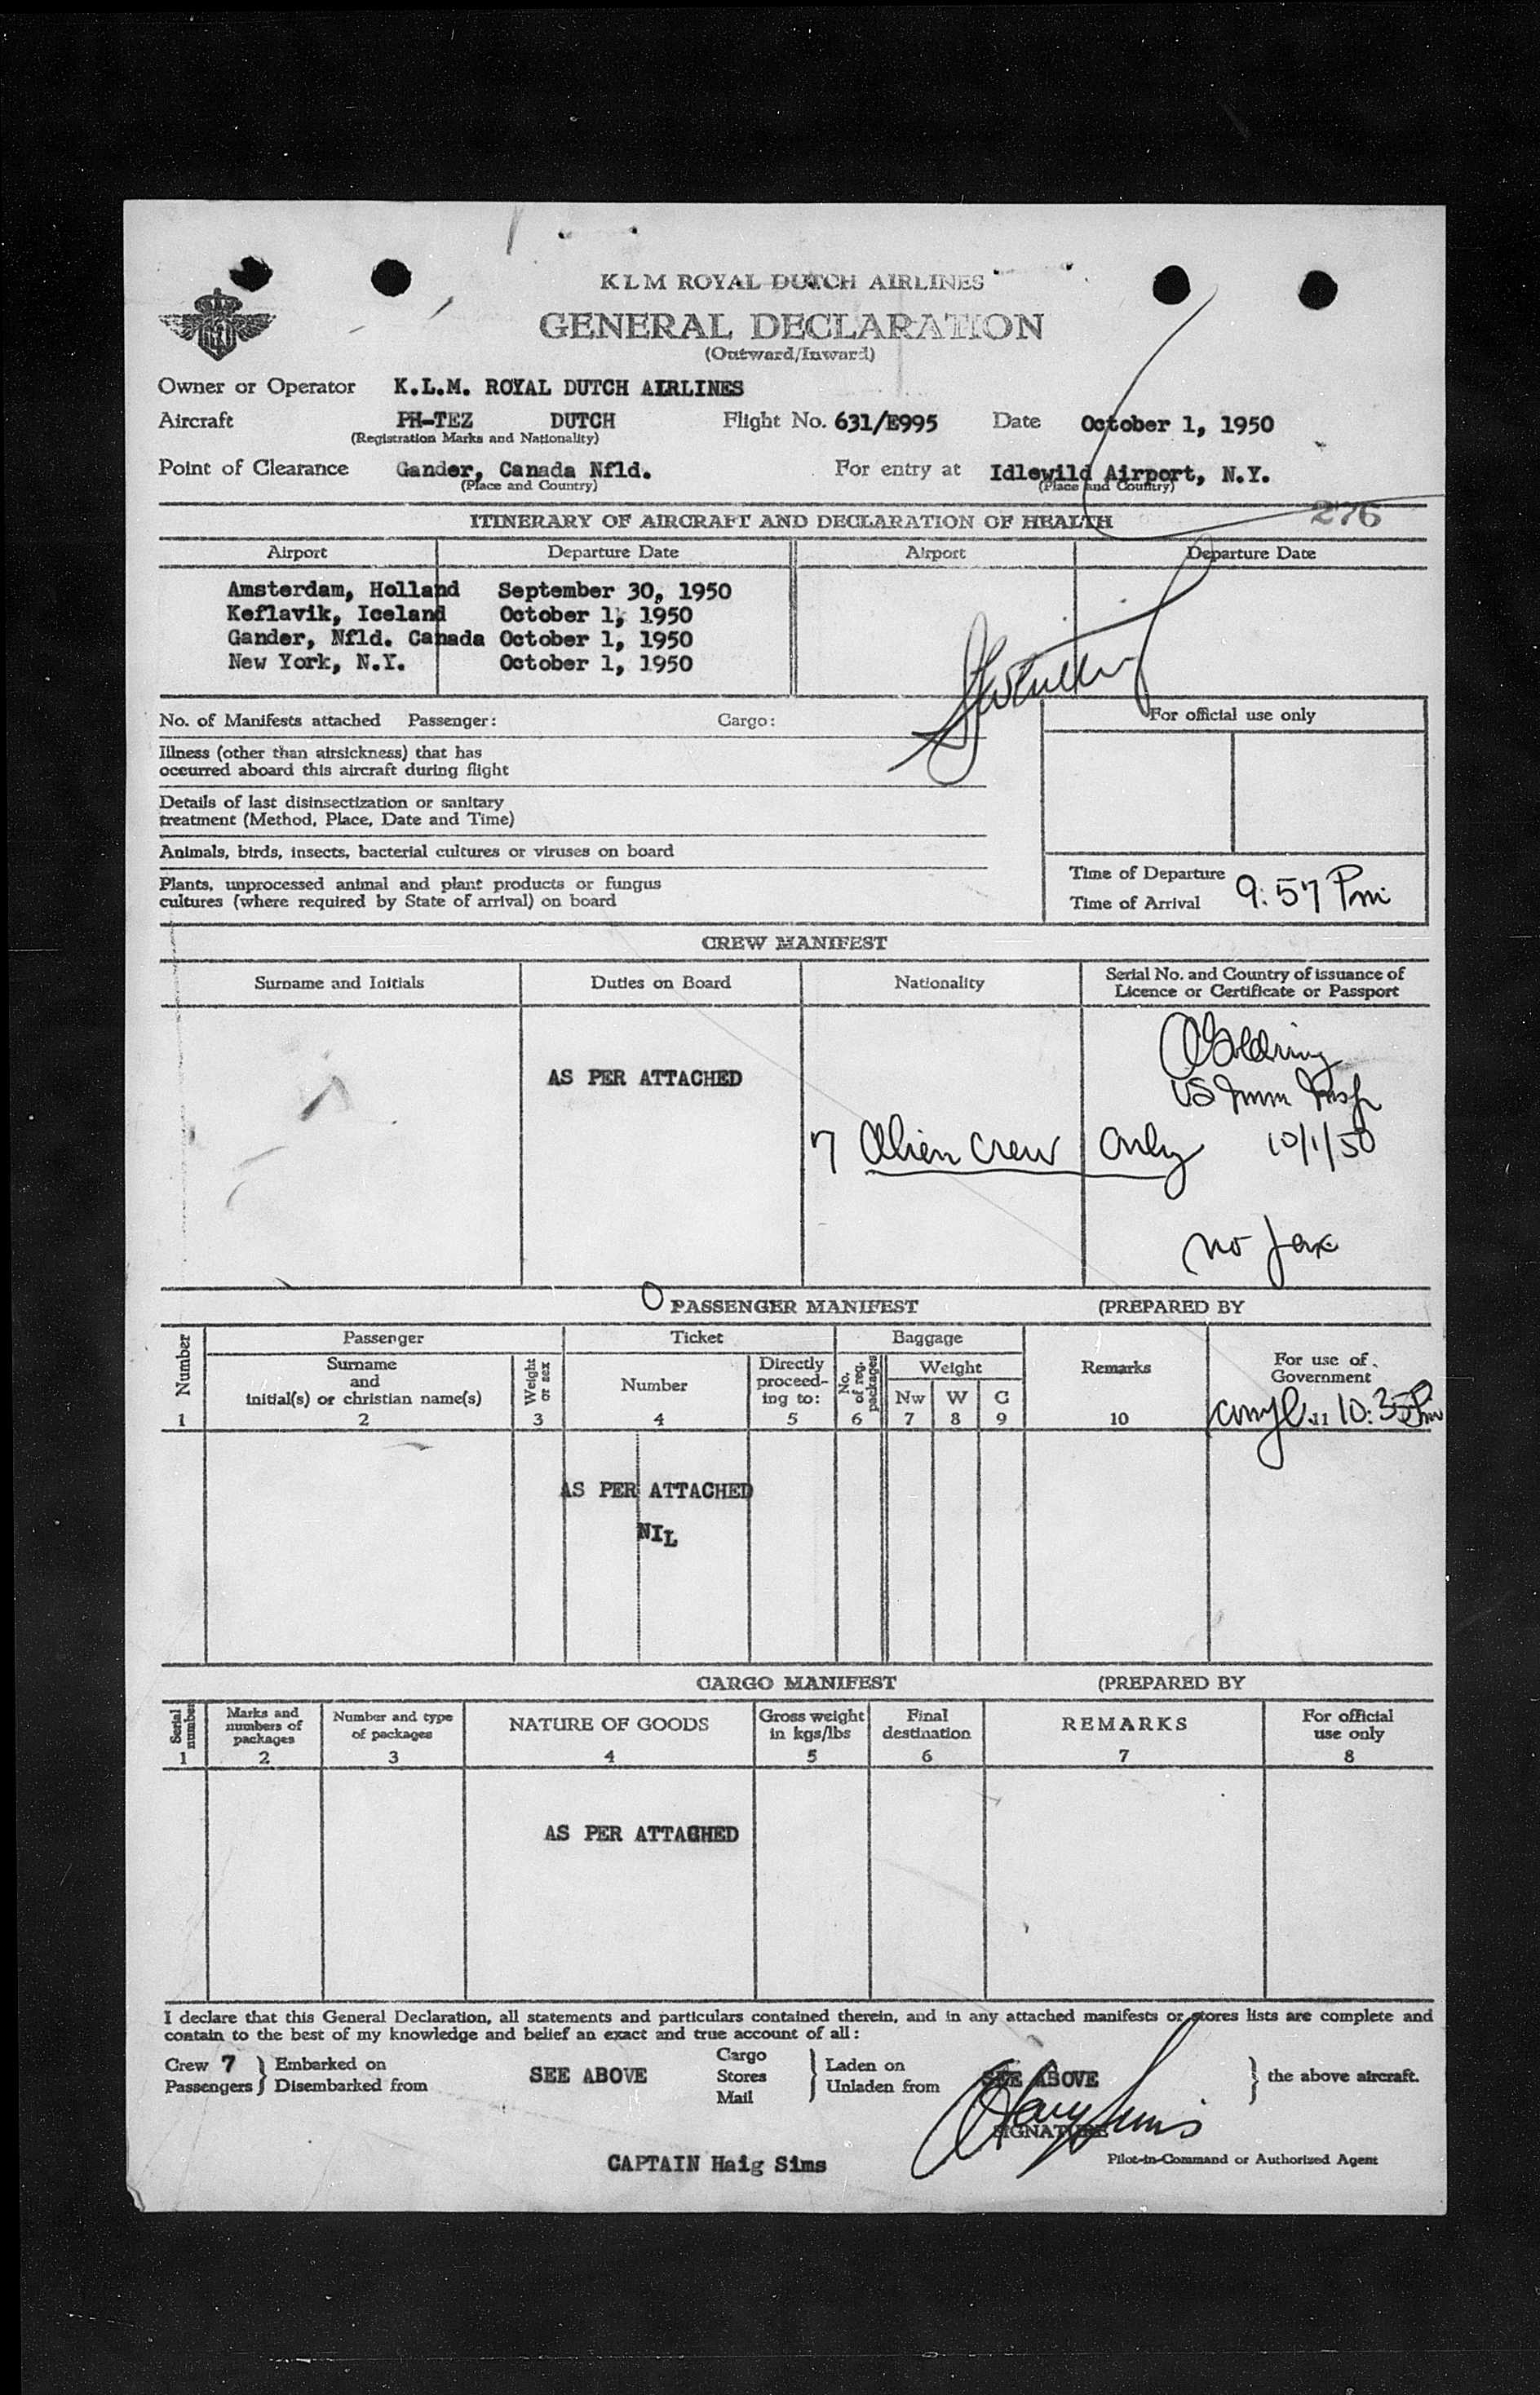 KLM ROYAL DUTCH AIRLINES
GENERAL DECLARATION
(Outward/Inward)
Owner or Operator K.L.M. ROYAL DUTCH AIRLINES
Aircraft PH-TEZ DUTCH Flight No. 631/E995 Date October 1, 1950
(Registration Marks and Nationality)
Point of Clearance Gander, Canada Nfld. For entry at Idlewild Airport, N.Y.
(Place and Country) (Place and Country)
276
ITINERARY OF AIRCRAFT AND DECLARATION OF HEALTH
Airport Departure Date Airport Departure Date
Amsterdam, Holland September 30, 1950
Keflavik, Iceland October 1, 1950
Gander, Nfld. Canada October 1, 1950
New York, N.Y. October 1, 1950
No. of Manifests attached Passenger: Cargo: For official use only
Illness (other than airsickness) that has
occurred aboard this aircraft during flight
Details of last disinsectization or sanitary
treatment (Method, Place, Date and Time)
Animals, birds, insects, bacterial cultures or viruses on board
Plants, unprocessed animal and plant products or fungus
cultures (where required by State of arrival) on board
Time of Departure
Time of Arrival 9:57 Pm
CREW MANIFEST
Surname and Initials Duties on Board Nationality Serial No. and Country of issuance of
Licence or Certificate or Passport
Goldring
AS PER ATTACHED US Imm Insp
7 Alien Crew Only 10/1/50
no tax
O PASSENGER MANIFEST (PREPARED BY
Number Passenger Ticket Baggage Remarks For use of
Government
Surname
and
initial(s) or christian name(s)
Weight or sex
Number
Directly
proceed-
ing to:
No. of reg. packages
Weight
Nw W C
1 2 3 4 5 6 7 8 9 10 11 10:35 Pm
AS PER ATTACHED
NIL
CARGO MANIFEST (PREPARED BY
Serial number
Marks and
numbers of
packages
Number and type
of packages
NATURE OF GOODS
Gross weight
in kgs/lbs
Final
destination
REMARKS
For official
use only
1 2 3 4 5 6 7 8
AS PER ATTACHED
I declare that this General Declaration, all statements and particulars contained therein, and in any attached manifests or stores lists are complete and
contain to the best of my knowledge and belief an exact and true account of all:
Crew 7 } Embarked on
Passengers } Disembarked from
SEE ABOVE
Cargo
Stores
Mail
} Laden on
Unladen from
SEE ABOVE
} the above aircraft.
SIGNATURE
CAPTAIN Haig Sims
Pilot-in-Command or Authorized Agent